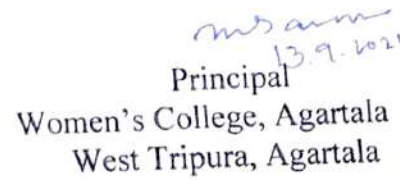 Principal
Women's College, Agartala
West Tripura, Agartala